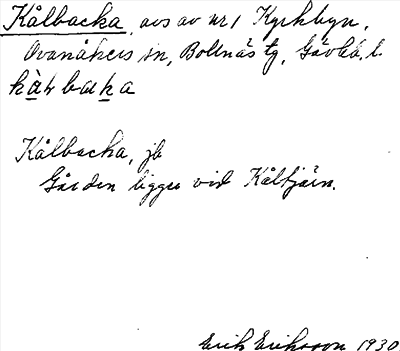 Kålbacka, avs av nr 1 Kyrkbyn,
Ovanåkers sn, Bollnäs tg, Gävleb. l.
Kålbacka, jb
Gården ligger vid Kåltjärn.
Erik Eriksson 1930